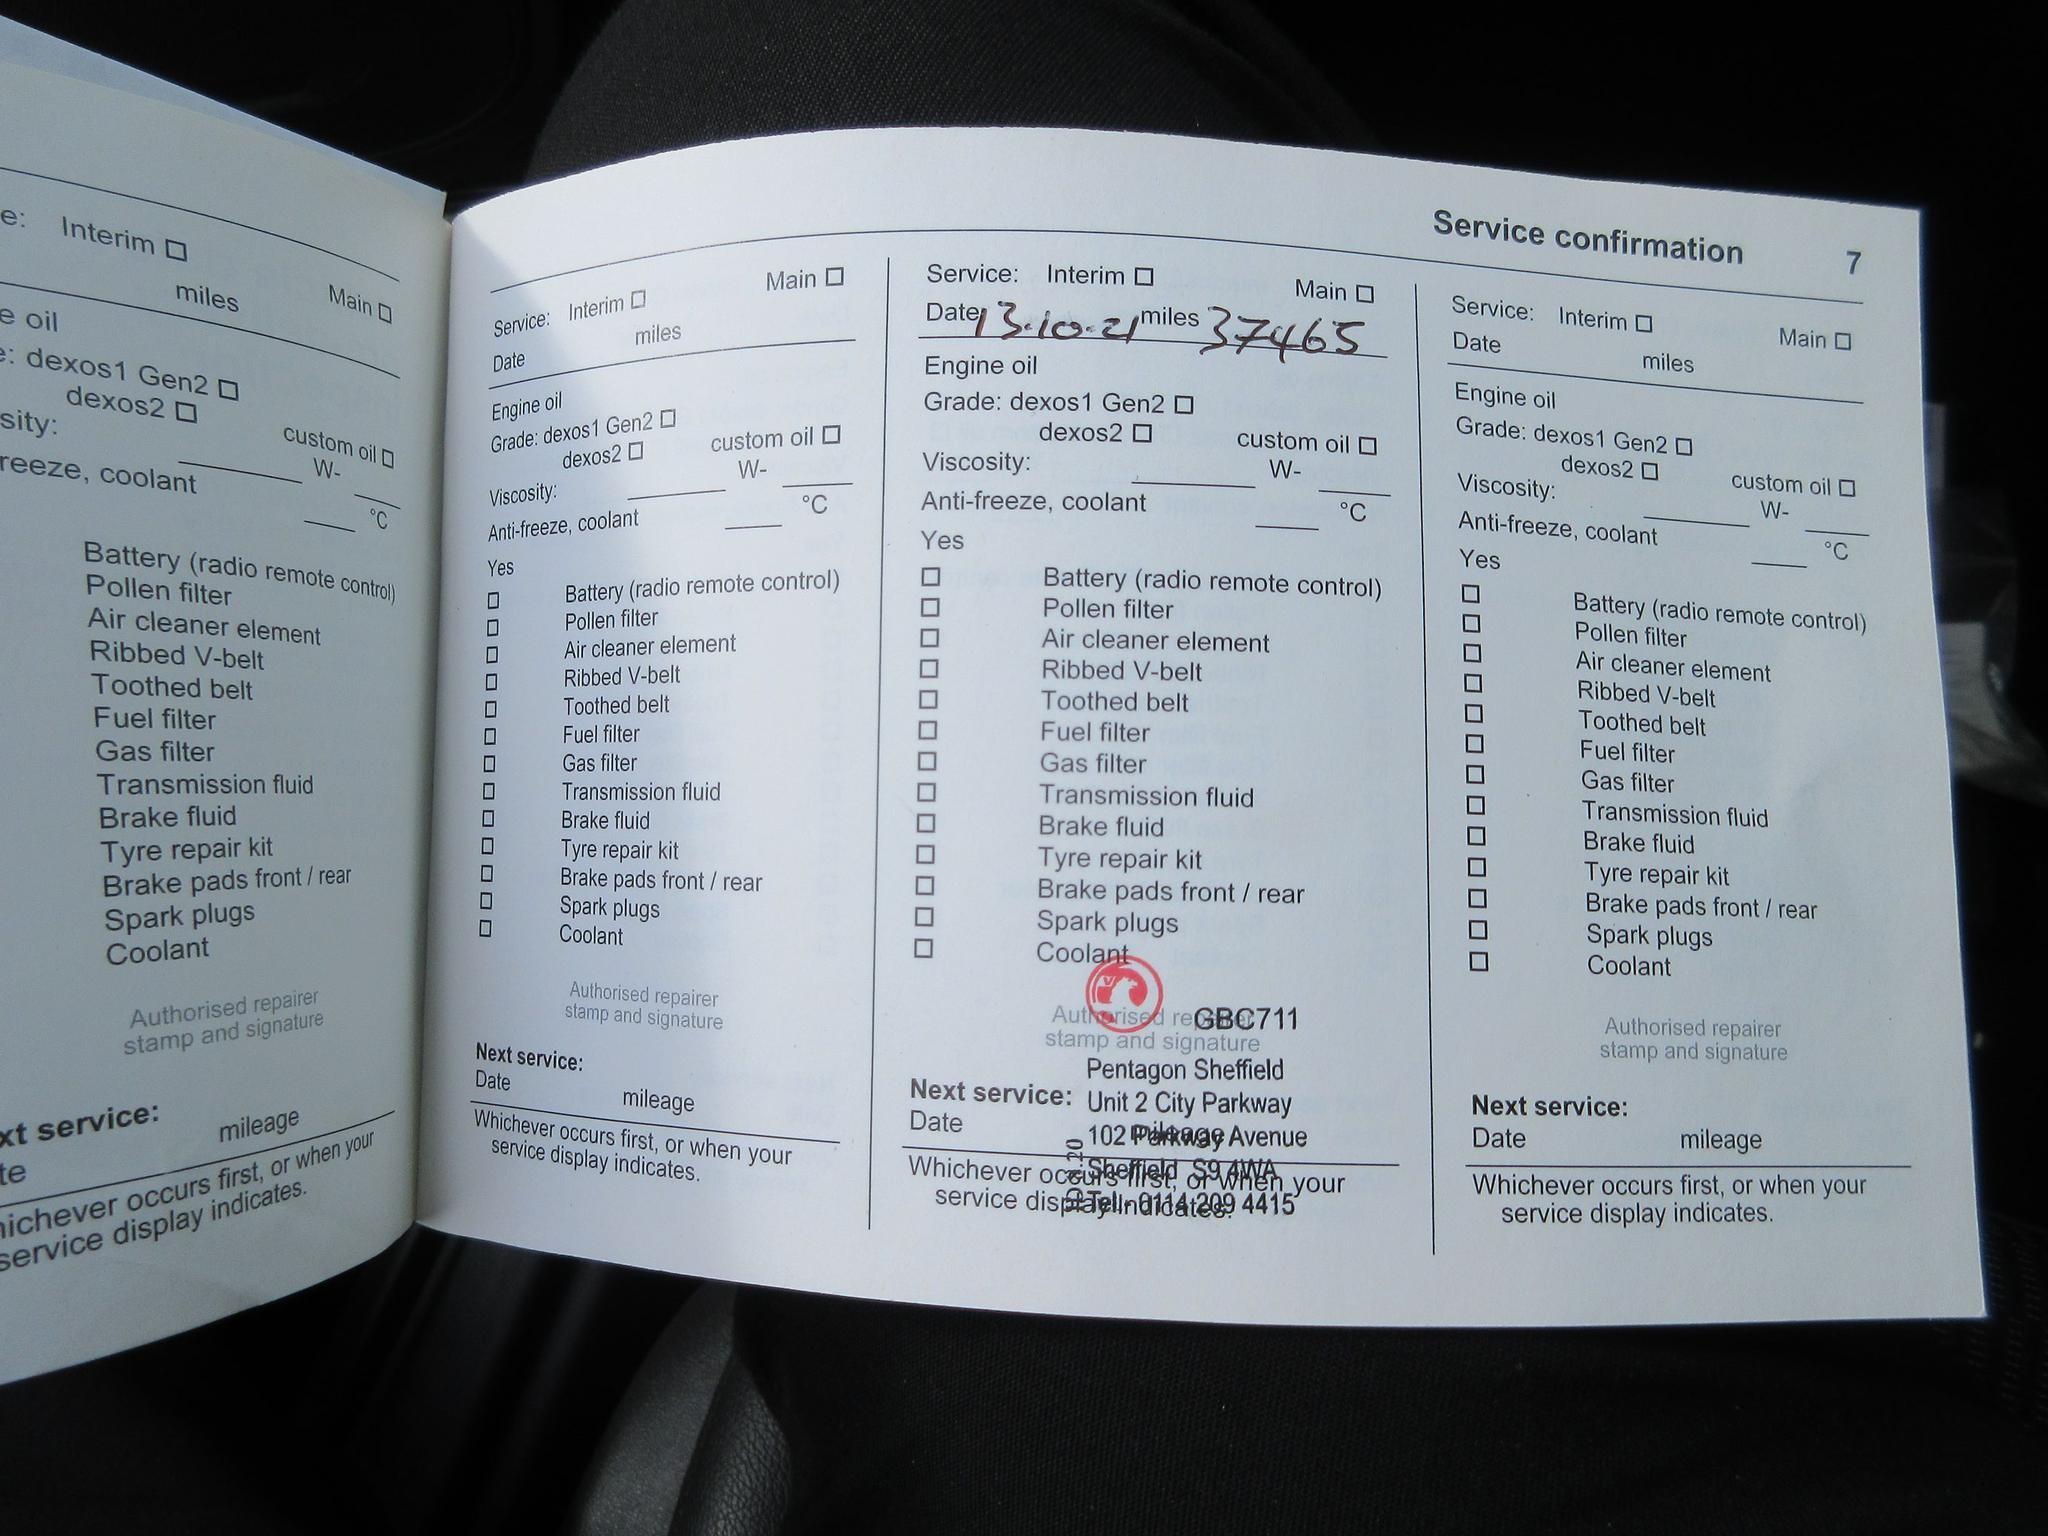 e: Interim
miles Main
e oil
e: dexos1 Gen2
dexos2
sity: custom oil
W-
reeze, coolant
°C
Battery (radio remote control)
Pollen filter
Air cleaner element
Ribbed V-belt
Toothed belt
Fuel filter
Gas filter
Transmission fluid
Brake fluid
Tyre repair kit
Brake pads front / rear
Spark plugs
Coolant
Authorised repairer
stamp and signature
xt service:
te mileage
hichever occurs first, or when your
service display indicates.
Service confirmation 7
Service: Interim Main
Date miles
Engine oil
Grade: dexos1 Gen2
dexos2 custom oil
Viscosity: W-
Anti-freeze, coolant °C
Yes
Battery (radio remote control)
Pollen filter
Air cleaner element
Ribbed V-belt
Toothed belt
Fuel filter
Gas filter
Transmission fluid
Brake fluid
Tyre repair kit
Brake pads front / rear
Spark plugs
Coolant
Authorised repairer
stamp and signature
Next service:
Date mileage
Whichever occurs first, or when your
service display indicates.
Service: Interim Main
Date 13.10.21 miles 37465
Engine oil
Grade: dexos1 Gen2
dexos2 custom oil
Viscosity: W-
Anti-freeze, coolant °C
Yes
Battery (radio remote control)
Pollen filter
Air cleaner element
Ribbed V-belt
Toothed belt
Fuel filter
Gas filter
Transmission fluid
Brake fluid
Tyre repair kit
Brake pads front / rear
Spark plugs
Coolant
Authorised repairer
stamp and signature
GBC711
Pentagon Sheffield
Unit 2 City Parkway
102 Parkway Avenue
Sheffield S9 4WA
Tel:- 0114 209 4415
Next service:
Date mileage
Whichever occurs first, or when your
service display indicates.
Service: Interim Main
Date miles
Engine oil
Grade: dexos1 Gen2
dexos2 custom oil
Viscosity: W-
Anti-freeze, coolant °C
Yes
Battery (radio remote control)
Pollen filter
Air cleaner element
Ribbed V-belt
Toothed belt
Fuel filter
Gas filter
Transmission fluid
Brake fluid
Tyre repair kit
Brake pads front / rear
Spark plugs
Coolant
Authorised repairer
stamp and signature
Next service:
Date mileage
Whichever occurs first, or when your
service display indicates.